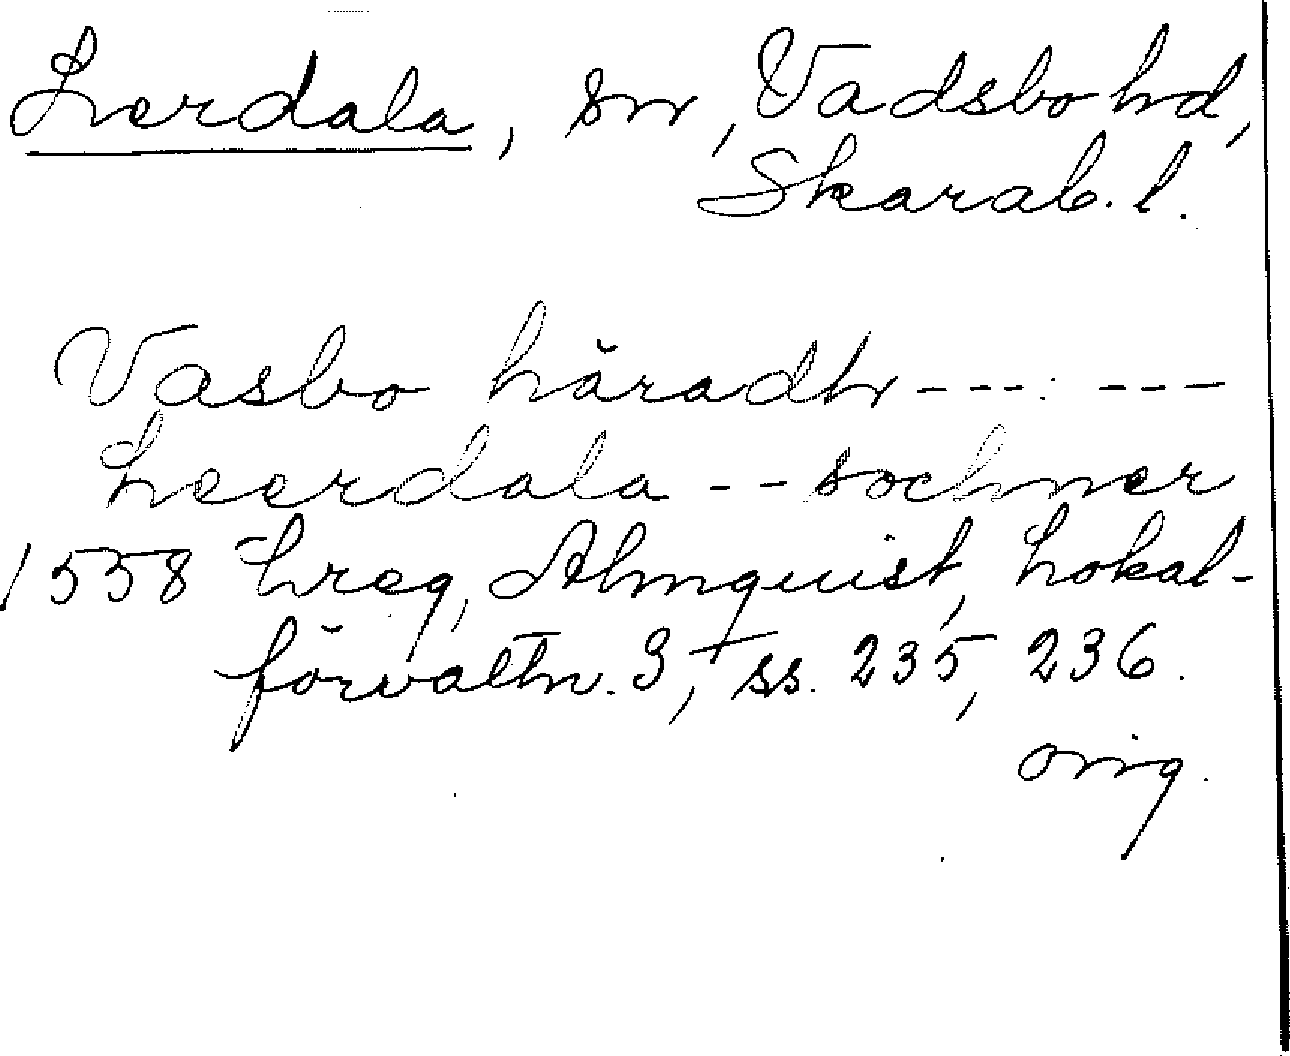 Lerdala, sn, Vadsbo hd,
Skarab. l.
Vasbo häradh --- ---
Leerdala -- sochner
1558 Lreg, Almquist, Lokal-
förvaltn. 3, ss. 235, 236.
orig.